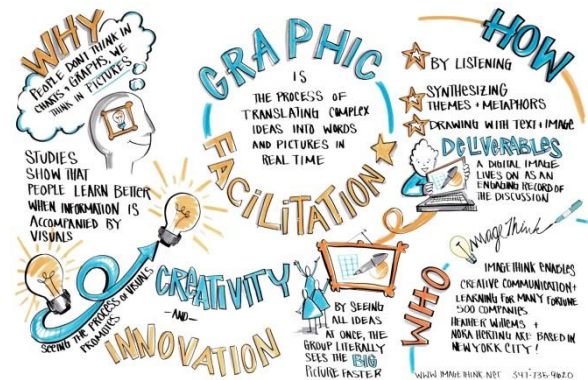 WHY
PEOPLE DON'T THINK IN
CHARTS + GRAPHS, WE
THINK IN PICTURES
STUDIES
SHOW THAT
PEOPLE LEARN BETTER
WHEN INFORMATION IS
ACCOMPANIED BY
VISUALS
SEEING THE PROCESS OF VISUALS
PROMOTES
CREATIVITY
-AND-
INNOVATION
GRAPHIC
FACILITATION
IS
THE PROCESS OF
TRANSLATING COMPLEX
IDEAS INTO WORDS
AND PICTURES IN
REAL TIME
BY SEEING
ALL IDEAS
AT ONCE, THE
GROUP LITERALLY
SEES THE BIG
PICTURE FASTER
HOW
BY LISTENING
SYNTHESIZING
THEMES + METAPHORS
DRAWING WITH TEXT + IMAGE
DELIVERABLES
A DIGITAL IMAGE
LIVES ON AS AN
ENGAGING RECORD OF
THE DISCUSSION
ImageThink
WHO
IMAGETHINK ENABLES
CREATIVE COMMUNICATION +
LEARNING FOR MANY FORTUNE
500 COMPANIES
HEATHER WILLEMS +
NORA HERTING ARE BASED IN
NEW YORK CITY!
WWW.IMAGETHINK.NET 347-735-9620